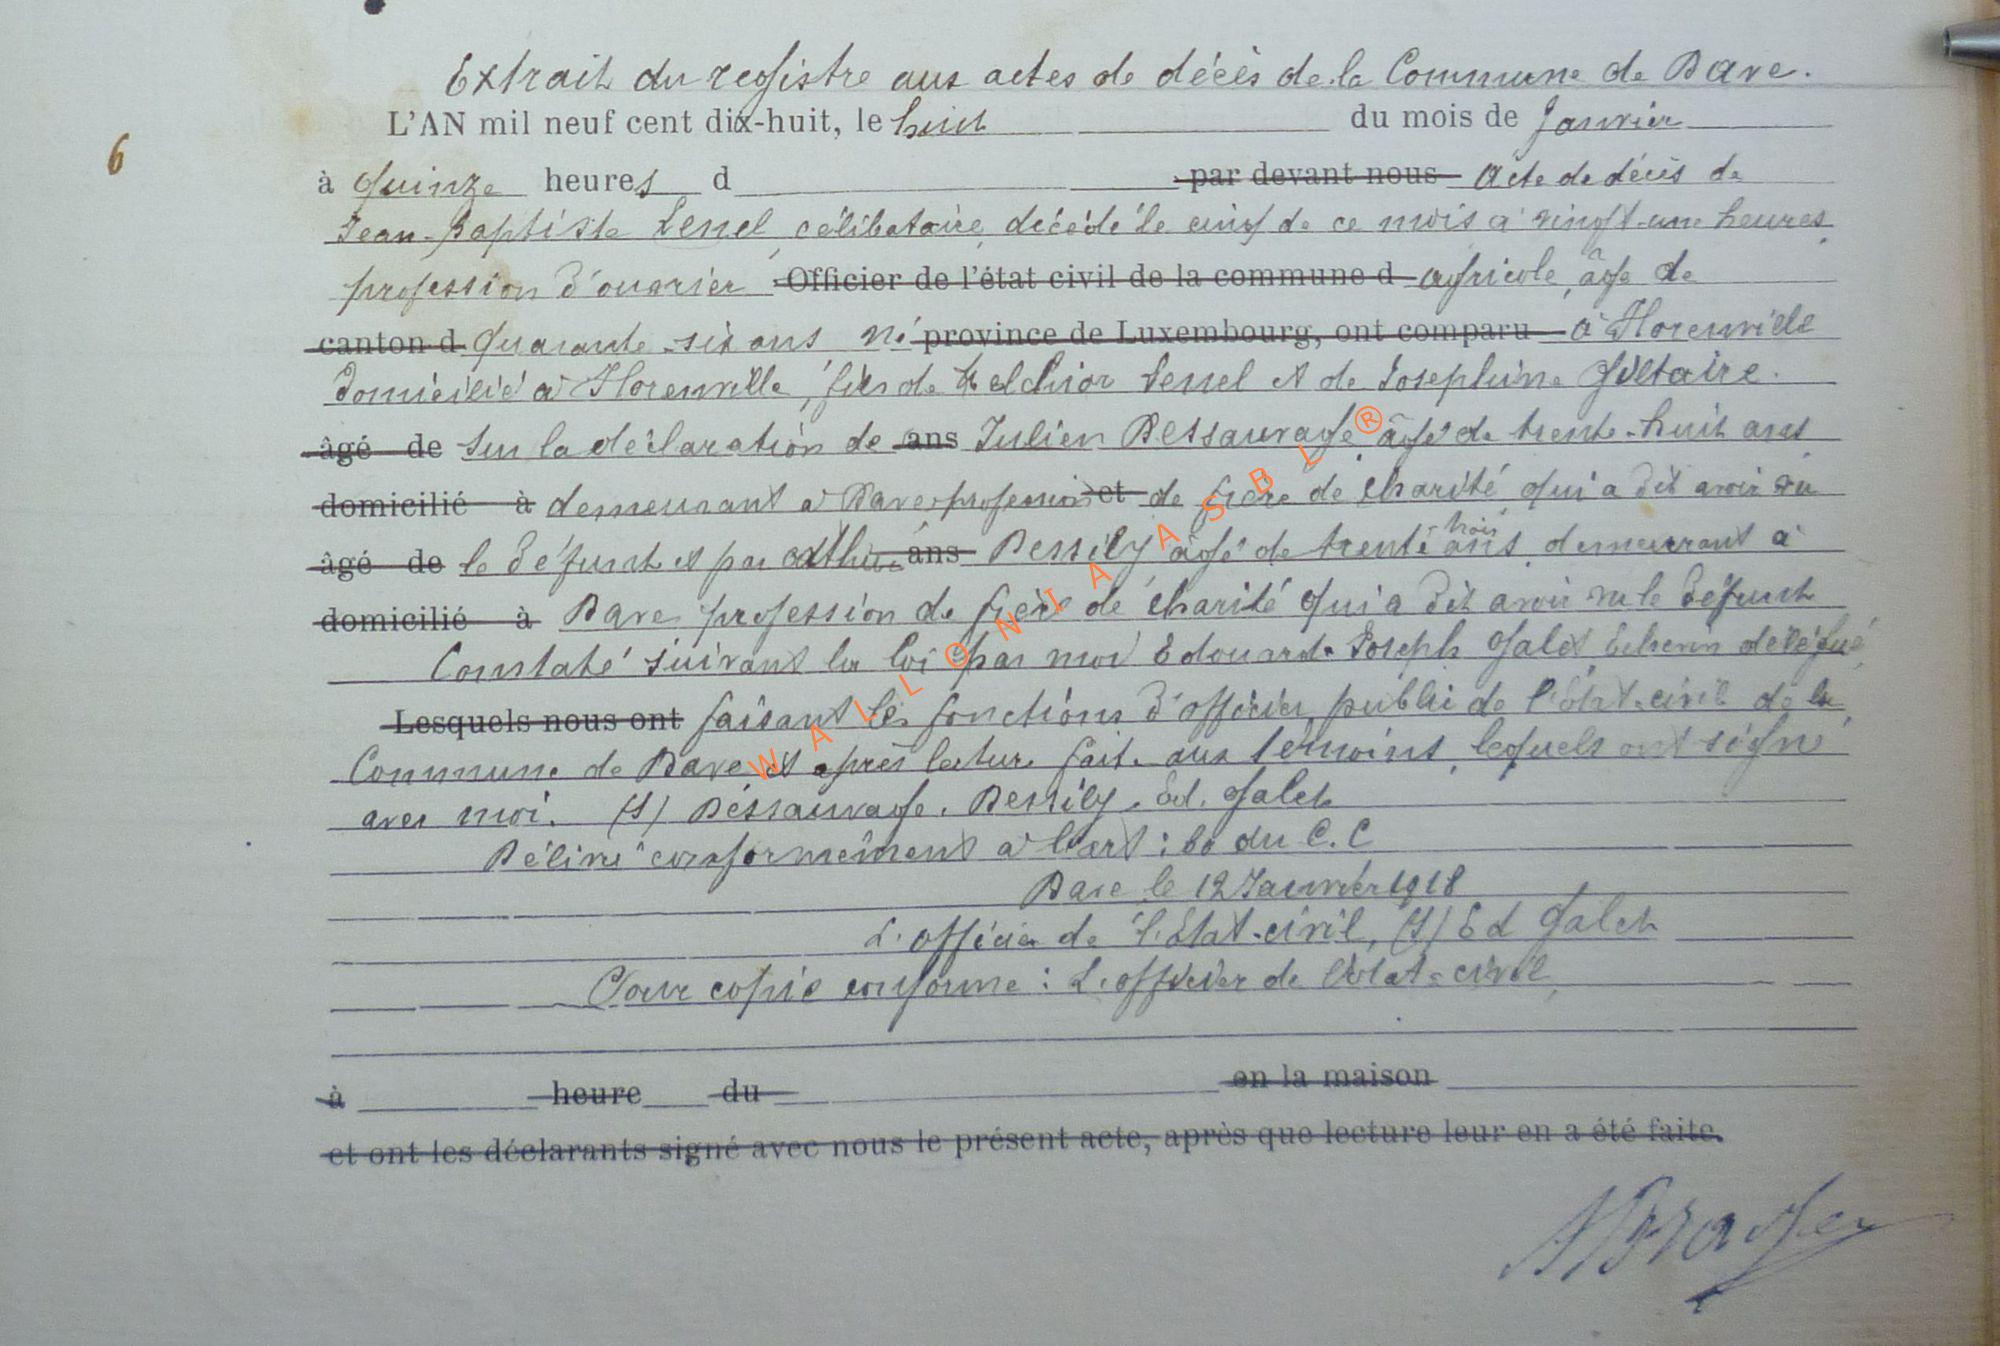 Extrait du registre aux actes de décès de la Commune de Dave.
L'AN mil neuf cent dix-huit, le huit du mois de Janvier
6
à quinze heures d par devant nous Acte de décès de
Jean-Baptiste Lessel, célibataire, décédé le cinq de ce mois à vingt-une heures,
profession d'ouvrier Officier de l'état civil de la commune d agricole, âgé de
canton d quarante-six ans né province de Luxembourg, ont comparu à Florenville
domicilié à Florenville, fils de Melchior Lessel et de Josephine Giltaire.
âgé de Sur la déclaration de ans Julien Dessauvage âgé de trente-huit ans
domicilié à demeurant à Dave profession et de frère de charité qui a dit avoir vu
âgé de le défunt et par ans Dessily âgé de trente trois ans, demeurant à
domicilié à Dave profession de frère de charité qui a dit avoir vu le défunt
Constaté suivant la loi par moi Edouard-Joseph Galet Echevin délégué
Lesquels nous ont faisant les fonctions d'officier public de l'état-civil de la
Commune de Dave et après lecture faite aux témoins, lesquels ont signé
avec moi. (S) Dessauvage. Dessily. Ed. Galet
Délivré conformément à l'art: 80 du C.C
Dave le 12 Janvier 1918
L'officier de l'Etat-civil, (S) Ed Galet
Pour copie conforme: L'officier de l'état-civil,
à heure du en la maison
et ont les déclarants signé avec nous le présent acte, après que lecture leur en a été faite.
WALLONIA ASBL ®